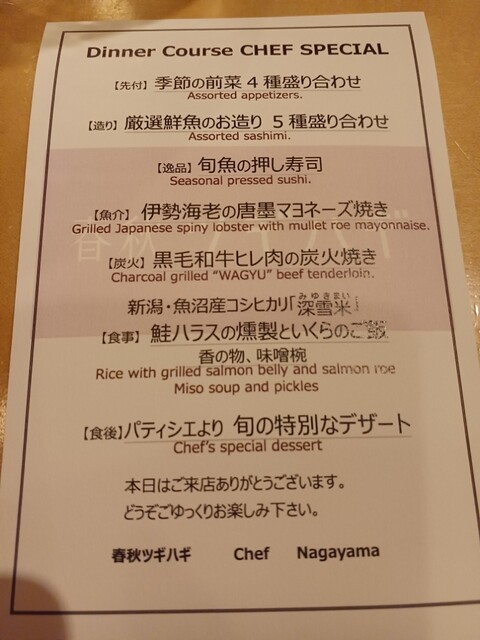 Dinner Course CHEF SPECIAL
【先付】季節の前菜 4 種盛り合わせ
Assorted appetizers.
【造り】厳選鮮魚のお造り 5 種盛り合わせ
Assorted sashimi.
【逸品】旬魚の押し寿司
Seasonal pressed sushi.
【魚介】伊勢海老の唐墨マヨネーズ焼き
Grilled Japanese spiny lobster with mullet roe mayonnaise.
【炭火】黒毛和牛ヒレ肉の炭火焼き
Charcoal grilled “WAGYU” beef tenderloin.
みゆきまい
新潟・魚沼産コシヒカリ「深雪米」
【食事】鮭ハラスの燻製といくらのご飯
香の物、味噌椀
Rice with grilled salmon belly and salmon roe
Miso soup and pickles
【食後】パティシエより 旬の特別なデザート
Chef’s special dessert
本日はご来店ありがとうございます。
どうぞごゆっくりお楽しみ下さい。
春秋ツギハギ Chef Nagayama